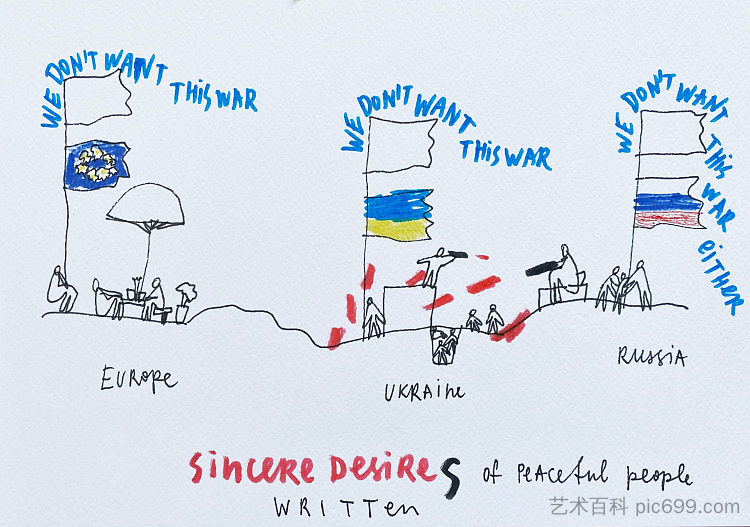 WE DON'T WANT THIS WAR
WE DON'T WANT THIS WAR
WE DON'T WANT THIS WAR EITHER
EUROPE
UKRAINE
RUSSIA
SINCERE DESIRES of PEACEFUL people
WRITTEN
艺术百科 pic699.com